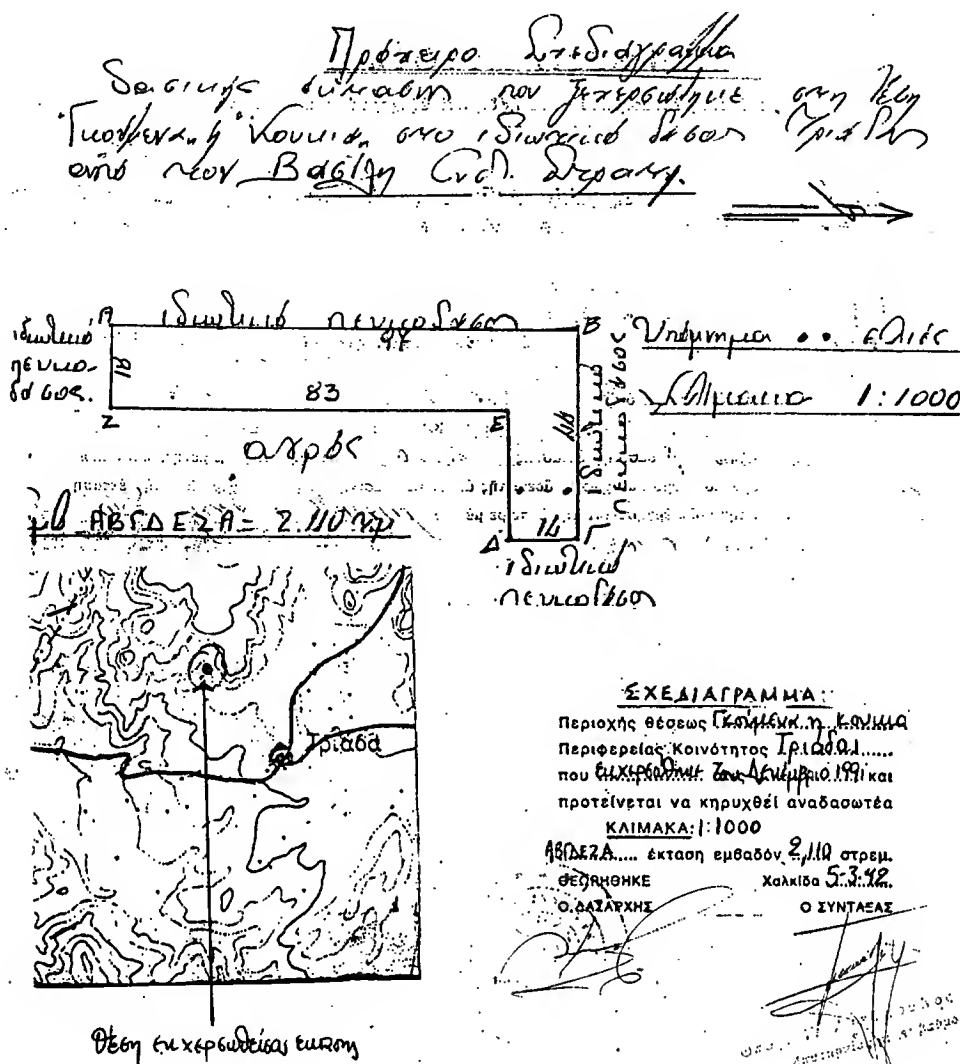 Πρόχειρο Σχεδιάγραμμα
δασικής έκτασης που ξεχερσώθηκε στη θέση
"Γκούμενα ή Κούκια" στο ιδιωτικό δάσος Τριάδας
από τον Βασίλη
ιδιωτικό πευκοδάσος
Α
97
Β
ιδιωτικό
πευκο-
δάσος.
83
Ζ
Ε
αγρός
ιδιωτικό
πευκοδάσος
Υπόμνημα •• ελιές
Κλίμακα 1:1000
ΑΒΓΔΕΖΑ = 2.110 τμ
Δ
14
Γ
ιδιωτικό
πευκοδάσος
Τριάδα
θέση εκχερσωθείσας έκτασης
ΣΧΕΔΙΑΓΡΑΜΜΑ:
Περιοχής θέσεως Γκούμενα ή
Περιφερείας Κοινότητος Τριάδα
που εκχερσώθηκε τον Δεκέμβριο 1991 και
προτείνεται να κηρυχθεί αναδασωτέα
ΚΛΙΜΑΚΑ: 1:1000
ΑΒΓΔΕΖΑ..... έκταση εμβαδόν 2,110 στρεμ.
ΘΕΩΡΗΘΗΚΕ Χαλκίδα 5-3-92
Ο ΔΑΣΑΡΧΗΣ Ο ΣΥΝΤΑΞΑΣ